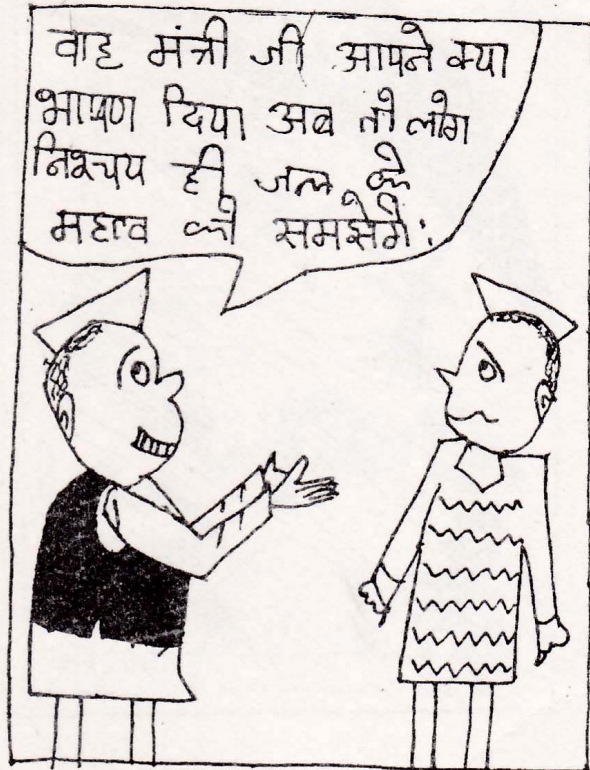 वाह मंत्री जी आपने क्या
भाषण दिया अब तो लोग
निश्चय ही जल के
महत्व को समझेगे!